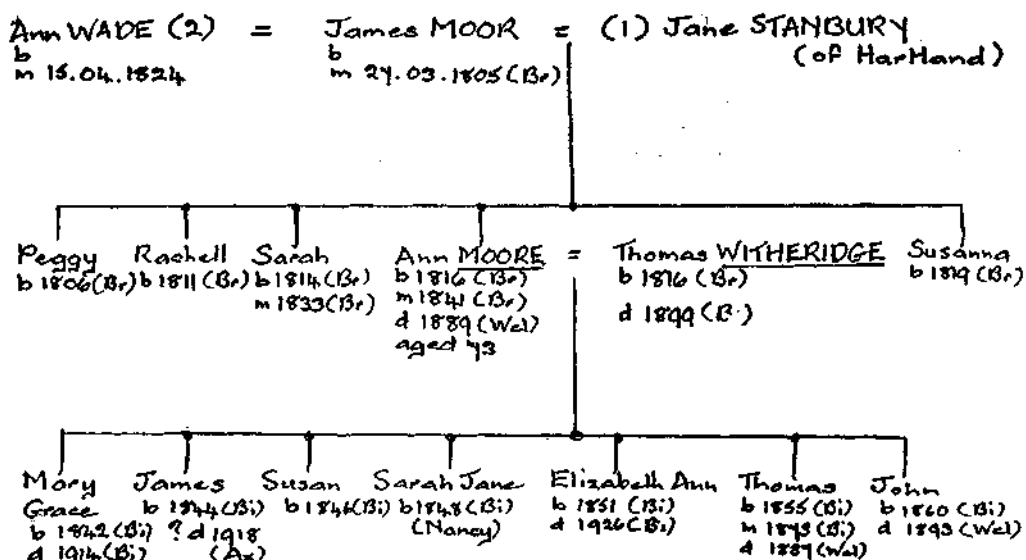 Ann WADE (2) = James MOOR = (1) Jane STANBURY
(of Hartland)
b
m 15.04.1824
b
m 27.03.1805(Br)
Peggy
b 1806(Br)
Rachell
b 1811(Br)
Sarah
b 1814(Br)
m 1833(Br)
Ann MOORE = Thomas WITHERIDGE
b 1816(Br)
m 1841(Br)
d 1889(Wel)
aged 73
b 1816(Br)
d 1899
Susanna
b 1819(Br)
Mary
Grace
b 1842(Bi)
d 1914(Bi)
James
b 1844(Bi)
? d 1918
(Ax)
Susan
b 1846(Bi)
Sarah Jane
b 1848(Bi)
(Nancy)
Elizabeth Ann
b 1851(Bi)
d 1926(Bi)
Thomas
b 1855(Bi)
m (Bi)
d (Wel)
John
b 1860(Bi)
d 1893(Wel)